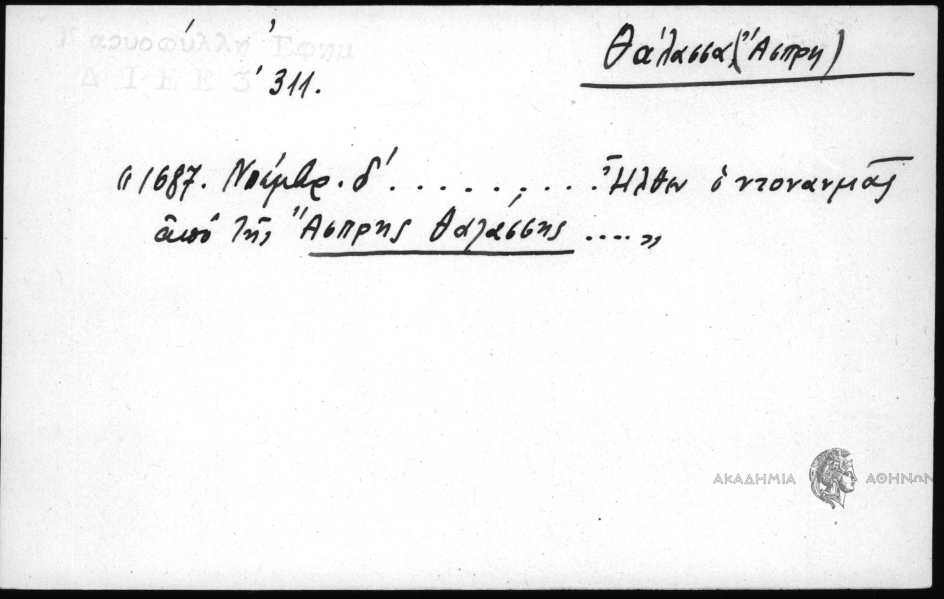 Γαρυοφύλλη Ἐφημ
ΔΙΕΕ 3
311.
Θάλασσα, (Ἄσπρη)
"1687. Νοέμβρ. δ' . . . . . . . . . Ἦλθεν ὁ ντονανμᾶς
ἀπὸ τῆς Ἄσπρης Θαλάσσης ...."
ΑΚΑΔΗΜΙΑ ΑΘΗΝΩΝ